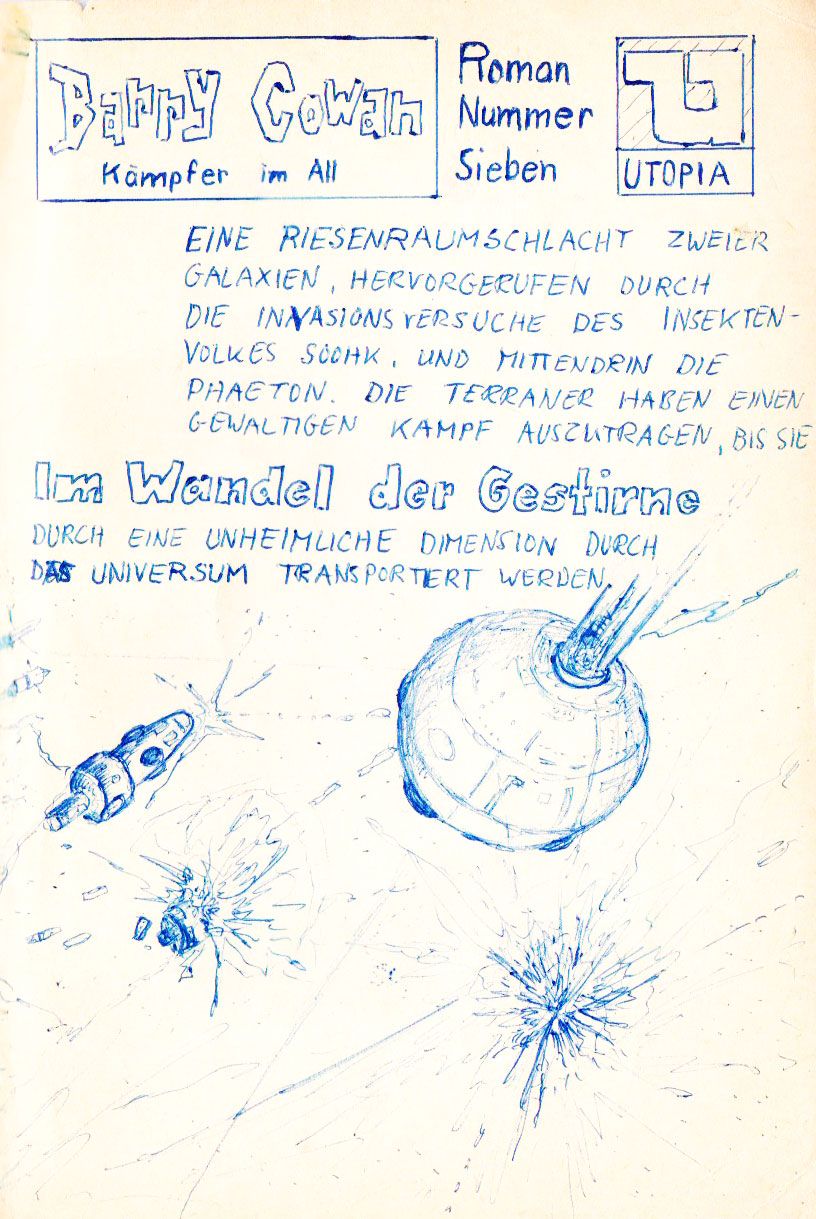 Barry Cowan
Kämpfer im All
Roman
Nummer
Sieben
UTOPIA
EINE RIESENRAUMSCHLACHT ZWEIER
GALAXIEN, HERVORGERUFEN DURCH
DIE INVASIONSVERSUCHE DES INSEKTEN-
VOLKES SOOHK, UND MITTENDRIN DIE
PHAETON. DIE TERRANER HABEN EINEN
GEWALTIGEN KAMPF AUSZUTRAGEN, BIS SIE
Im Wandel der Gestirne
DURCH EINE UNHEIMLICHE DIMENSION DURCH
DAS UNIVERSUM TRANSPORTIERT WERDEN.